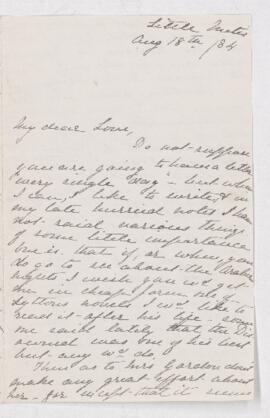 Little
Aug 18th /84
My dear Love,
Do not suppose
you are going to have a letter
"every single day" - but when
I can, I like to write & in
my late hurried notes I have
not said various things
of some little importance
One is that if, or when, you
do go to see about the
nights I wish you wd. get
me in cheap form one of
Lyttons novels I wd. like to
read it after his life - some
one said lately that the
was one of his best
but any wd. do.
Then as to Mrs Gordon dont
make any great effort about
her - for except that it seems